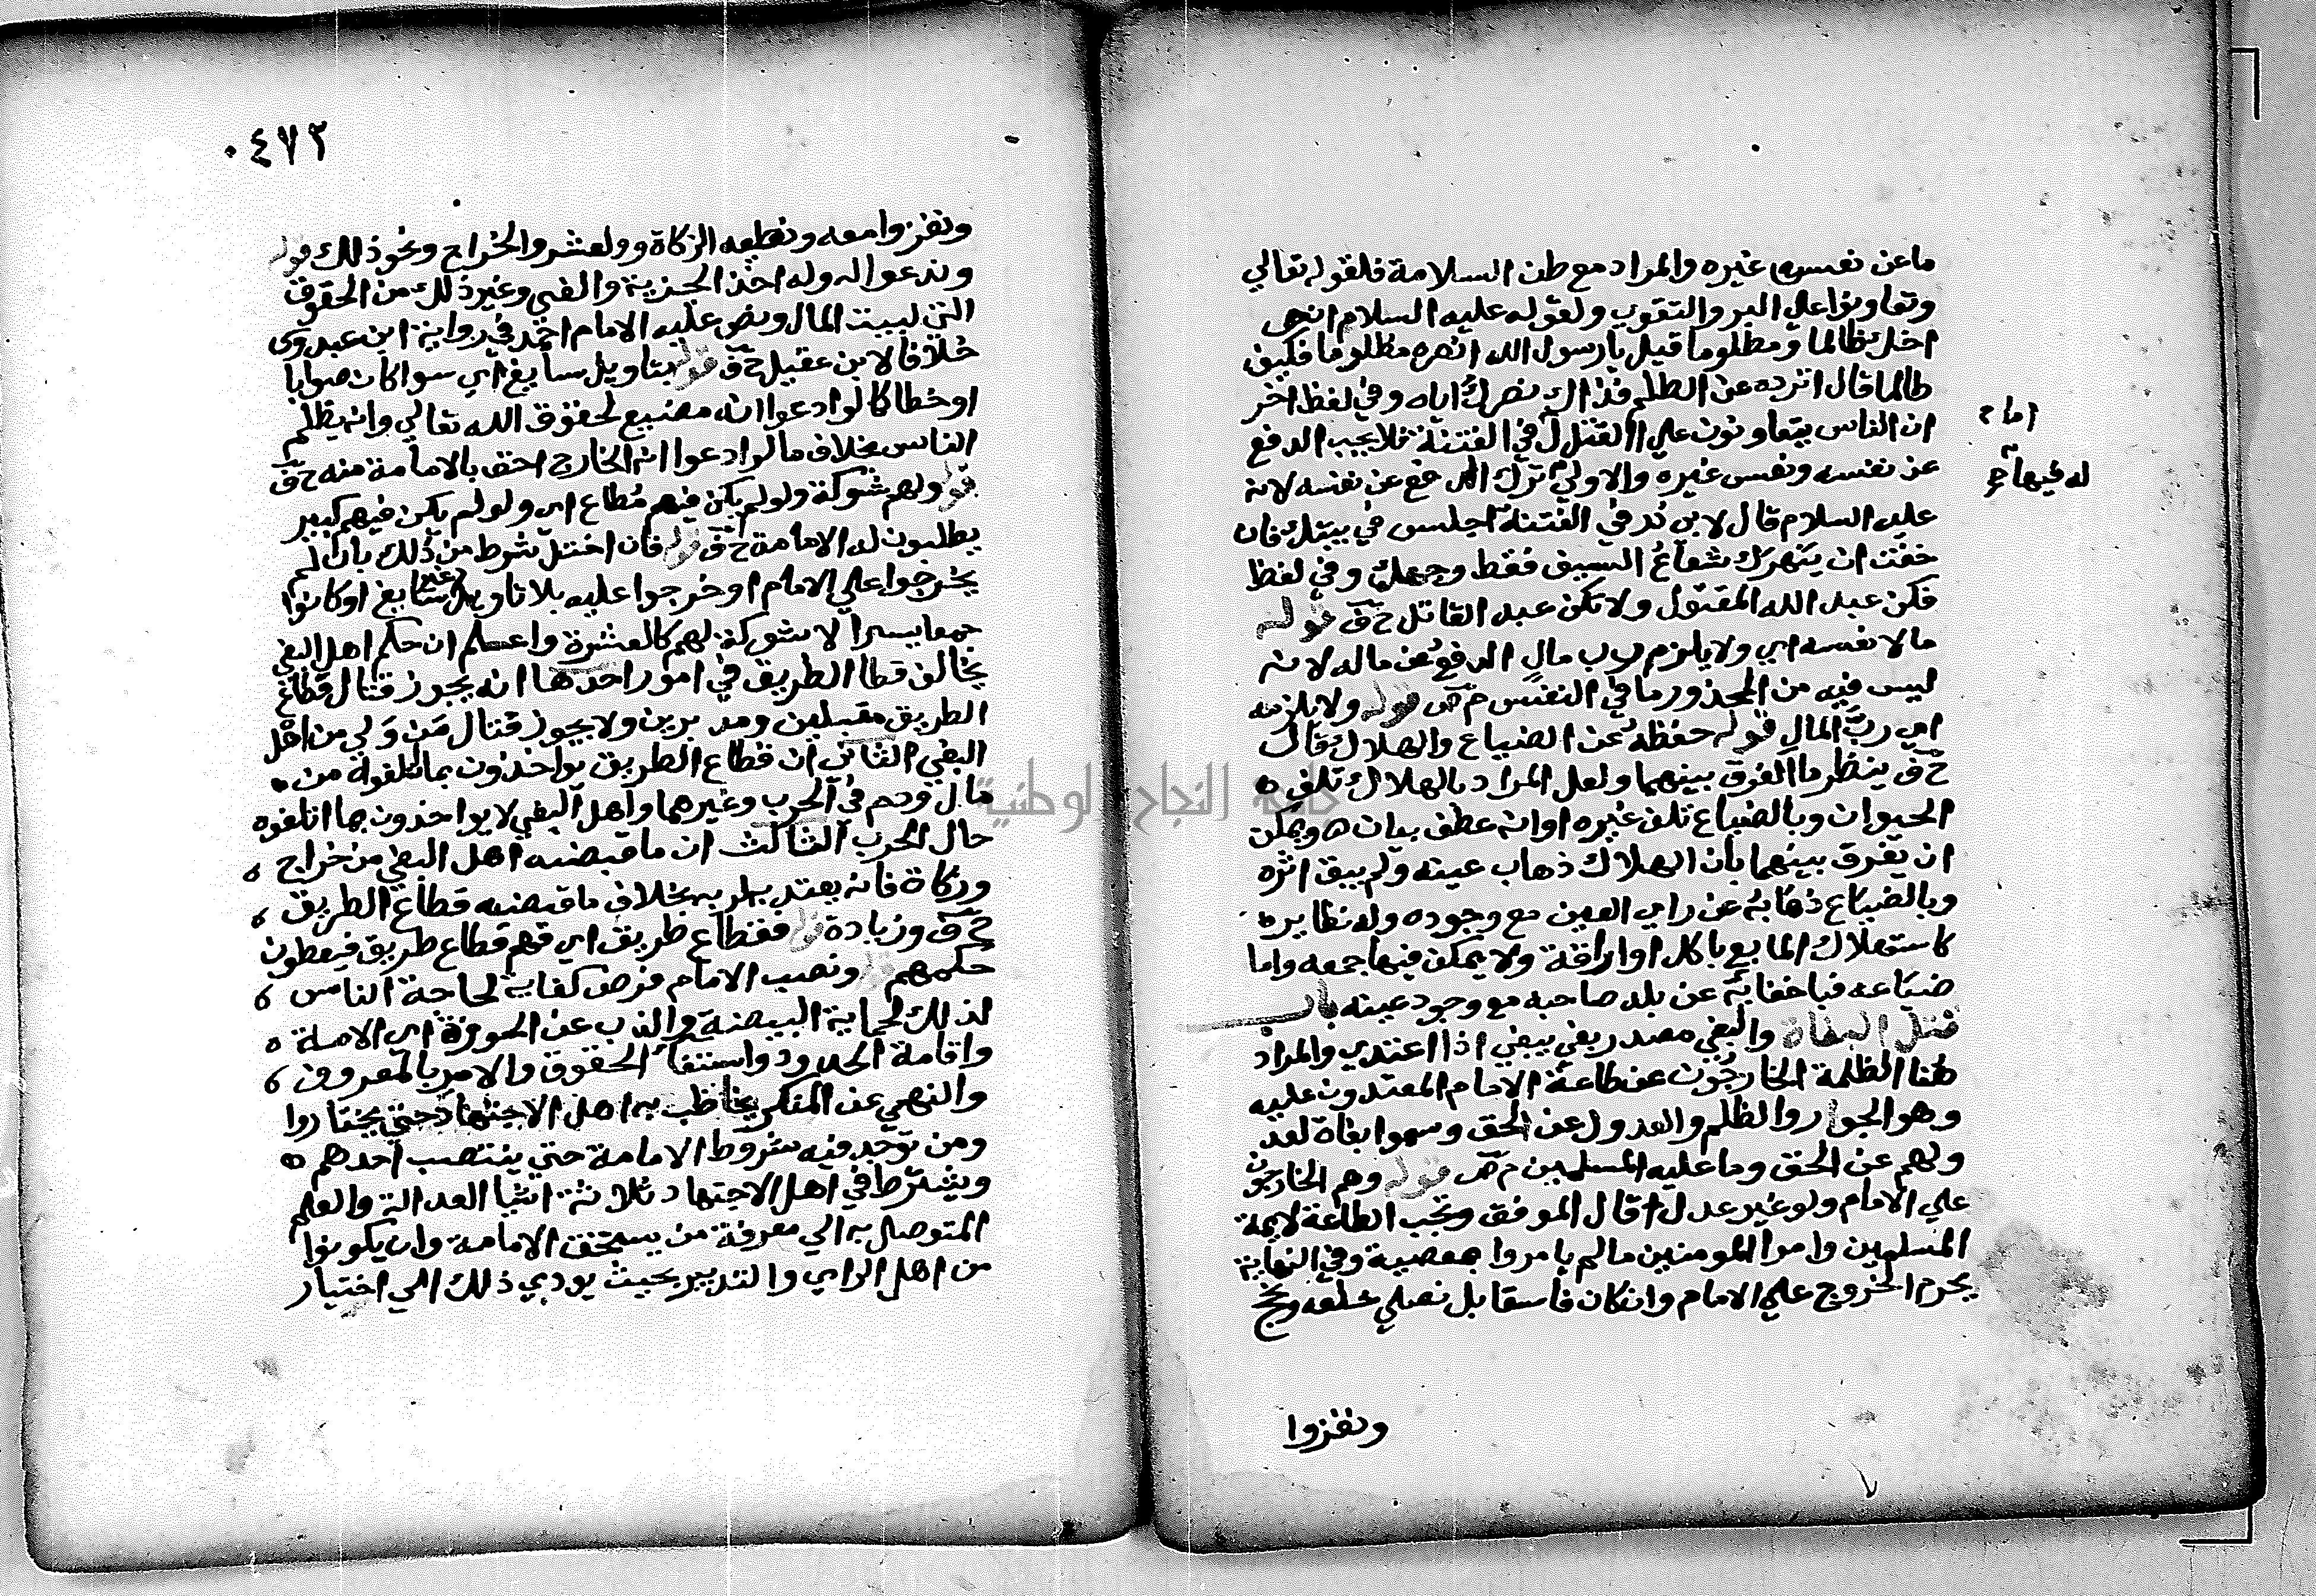 ما عن نفسه غيره والمراد مع ظن السلامة فلقوله تعالي
وتعاونوا علي البر والتقوي ولقوله عليه السلام انصر
اخاك ظالما ومظلوما قيل يا رسول الله انصره مظلوما فكيف
ظالما قال اترده عن الظلم فذاك نصرك اياه وفي لفظ اخر
ان الناس يتعاونون علي القتل في الفتنة فلا يجب الدفع
اما ح
عن نفسه ونفس غيره والاولي ترك الدفع عن نفسه لانه
له فيها
عليه السلام قال لابي ذر في الفتنة اجلس في بيتك فان
خفت ان يبهرك شعاع السيف فغط وجهك وفي لفظ
فكن عبد الله المقتول ولا تكن عبد القاتل ح ف قوله
مال نفسه اي ولا يلزم رب مال الدفع عن ماله لانه
ليس فيه من المحذور ما في النفس م ص قوله ولا يلزمه
اي رب المال قوله حفظه عن الضياع والهلاك قال
ح ف ينظر ما الفرق بينهما ولعل المراد بالهلاك تلف ه
الحيوان وبالضياع تلف غيره او انه عطف بيان ه ويمكن
ان يفرق بينهما بان الهلاك ذهاب عينه ولم يبق اثره
وبالضياع ذهابه عن راي العين مع وجوده وله نظاير ه
كاستهلاك المايع باكل او اراقة ولا يمكن فيها جمعه واما
ضياعه فباخفايه عن بلد صاحبه مع وجود عينه باب
قتل البغاة والبغي مصدر بغي يبغي اذا اعتدي والمراد
هنا الظلمة الخارجون عن طاعة الامام المعتدون عليه
وهو الجور والظلم والعدول عن الحق وسموا بغاة لعد
ولهم عن الحق وما عليه المسلمين م ص قوله وهم الخارجون
علي الامام ولو غير عدل قال الموفق وتجب الطاعة لايمة
المسلمين وامرا المومنين ما لم يامروا بمعصية وفي النهاية
يحرم الخروج علي الامام وان كان فاسقا بل نصلي خلفه ونحج
ونغزوا
٠٤٧٢
ونغزوا معه ونعطيه الزكاة والعشر والخراج ونحو ذلك قوله
وندعوا له وله اخذ الجزية والفي وغير ذلك من الحقوق
التي لبيت المال ونص عليه الامام احمد في رواية ابن عبدوس
خلافا لابن عقيل ح ف قوله بتاويل سايغ اي سوا كان صوابا
او خطا كما لو ادعوا انه مضيع لحقوق الله تعالي وانه يظلم
الناس بخلاف ما لو ادعوا ان الخارج احق بالامامة منه ح ف
قوله ولهم شوكة ولو لم يكن فيهم مطاع اي ولو لم يكن فيهم كبير
يطلبون له الامامة ح ف قوله فان اختل شرط من ذلك بان لم
يخرجوا علي الامام او خرجوا عليه بلا تاويل او غير سايغ او كانوا
جمعا يسيرا لا شوكة لهم كالعشرة واعلم ان حكم اهل البغي
يخالف قطاع الطريق في امور احدها انه يجوز قتال قطاع
الطريق مقبلين ومدبرين ولا يجوز قتال من ولي من اهل
البغي الثاني ان قطاع الطريق يواخذون بما اتلفوه من
مال ودم في الحرب وغيرهما واهل البغي لا يواخذون بما اتلفوه
حال الحرب الثالث ان ما قبضه اهل البغي من خراج
وزكاة فانه يعتد به لربه بخلاف ما قبضه قطاع الطريق
ح ف وزيادة قوله فقطاع طريق اي فهم قطاع طريق فيعطون
حكمهم قوله ونصب الامام فرض كفاية لحاجة الناس
لذلك لحماية البيضة والذب عن الحوزة اي الامة ه
واقامة الحدود واستيفا الحقوق والامر بالمعروف
والنهي عن المنكر يخاطب به اهل الاجتهاد حتي يختاروا
ومن توجد فيه شروط الامامة حتي ينتصب احدهم ه
ويشترط في اهل الاجتهاد ثلاثة اشيا العدالة والعلم
المتوصل به الي معرفة من يستحق الامامة وان يكونوا
من اهل الراي والتدبير بحيث يودي ذلك الي اختيار
جامعة النجاح الوطنية